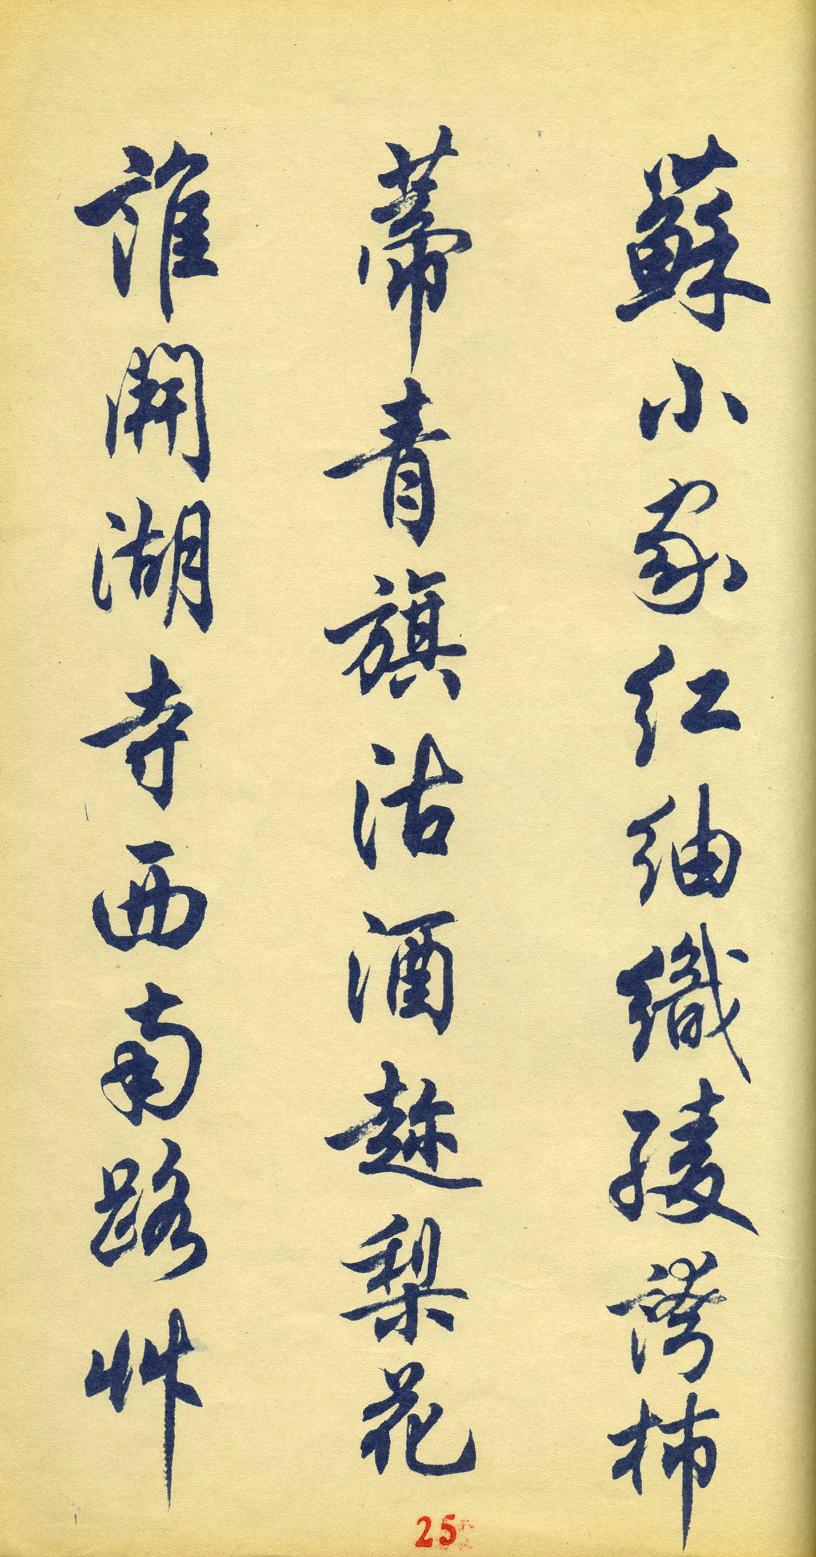 蘇小家紅紬織綾誇柿
蒂青旗沽酒趂梨花
誰開湖寺西南路艸
25